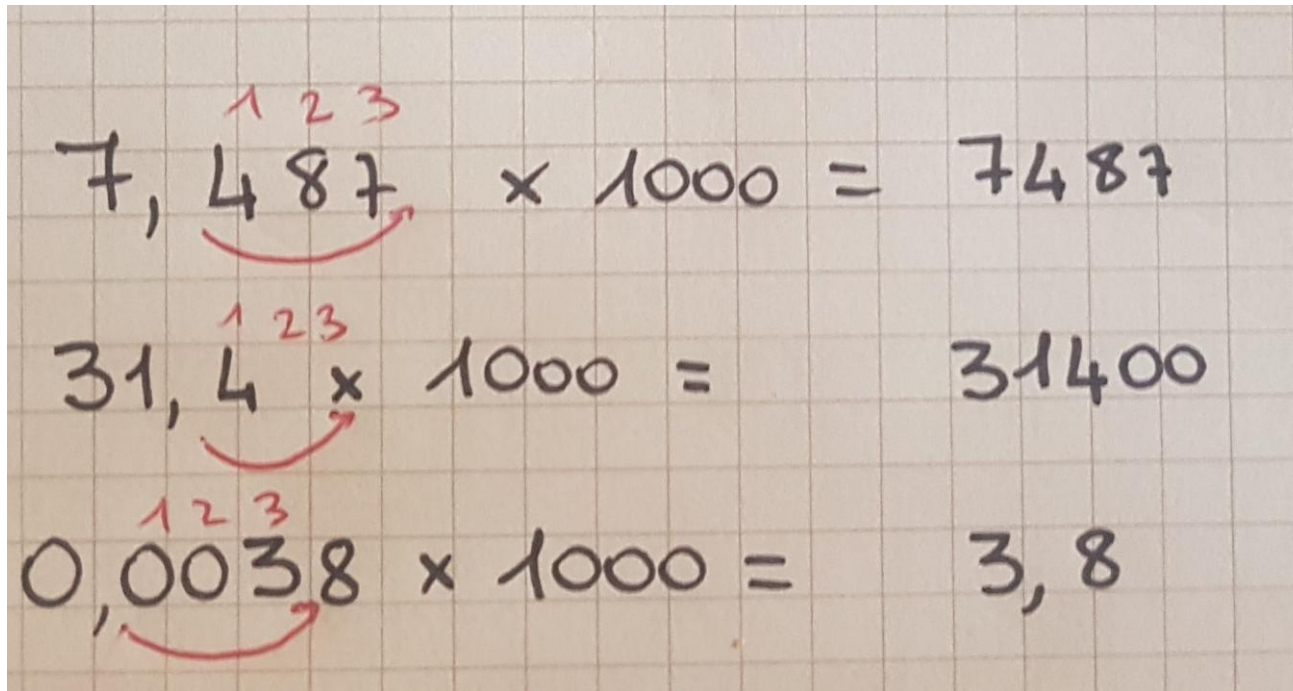 1 2 3
7,487 × 1000 = 7487
1 2 3
31,4 × 1000 = 31400
1 2 3
0,0038 × 1000 = 3,8